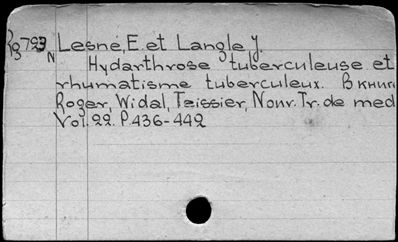 Lesné, E. et Langle J.
N
Hydarthrose tuberculeuse et
rhumatisme tuberculeux. В книге
Roger, Widal, Teissier, Nouv. Tr. de med
Vol. 22. P. 436-442